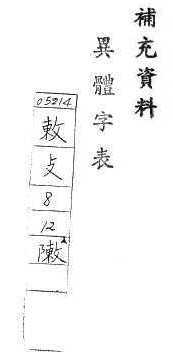 補充資料
異體字表
05214
敕
攴
8
12
𨼤